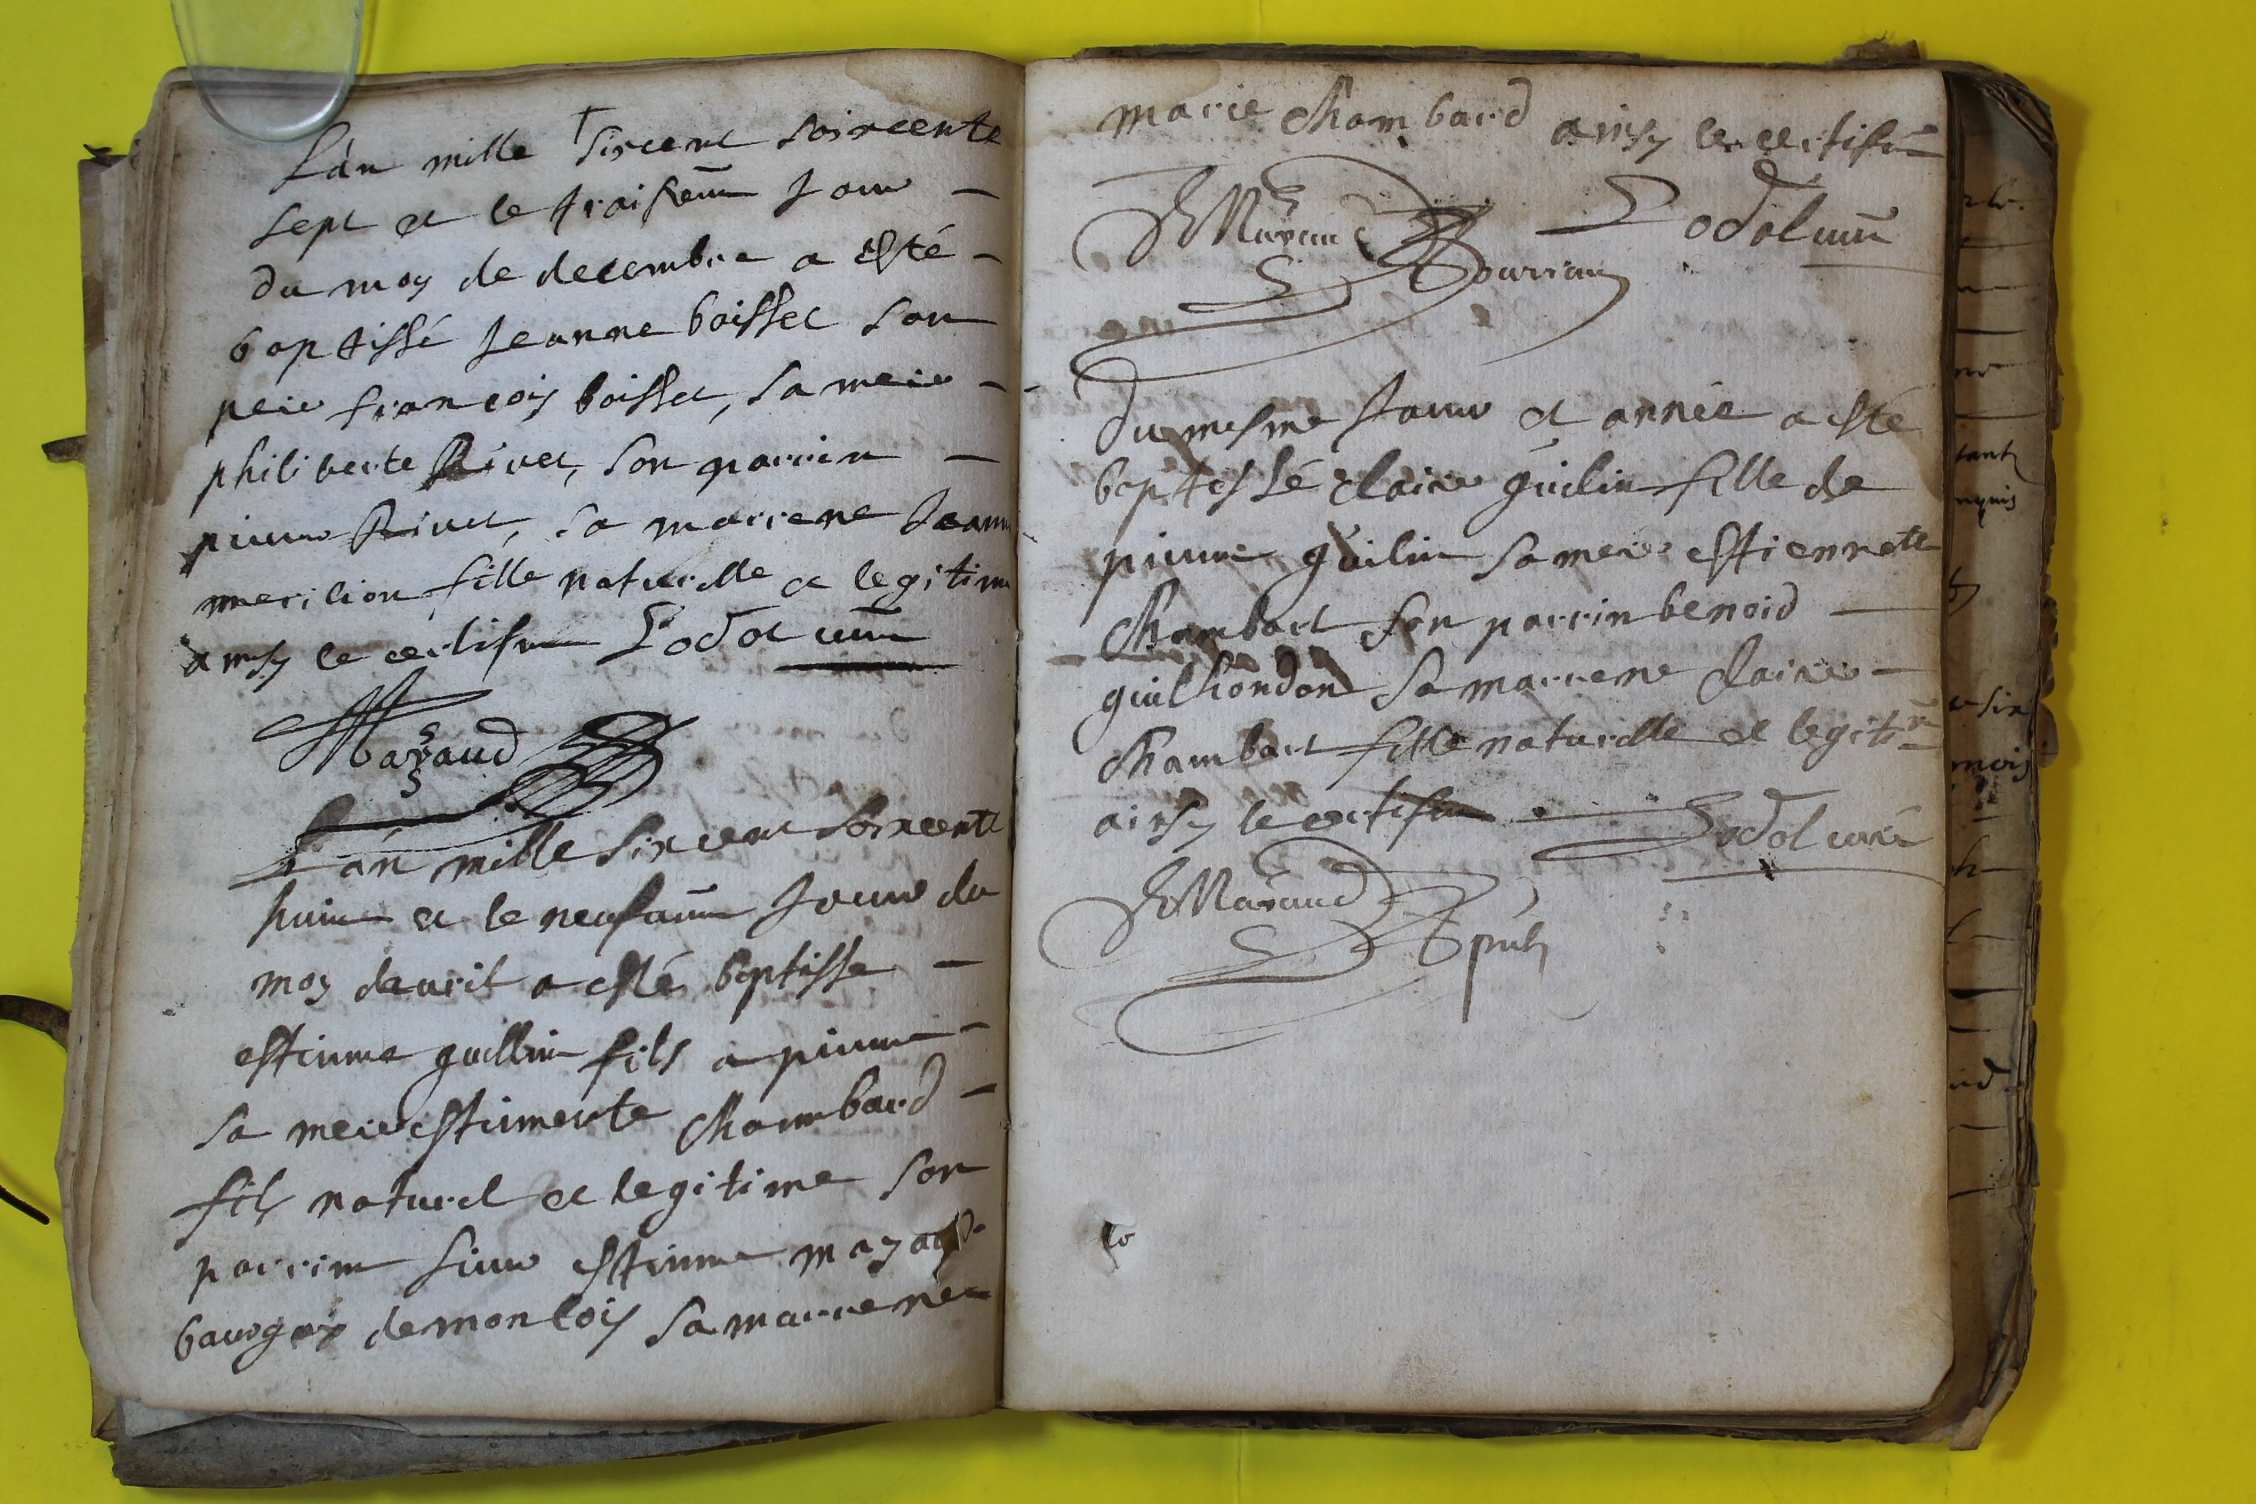 L'an mille sixcent soixcente
sept et le troisiem Jour
du moy de decembre a esté
baptissé Jeanne boisset son
pere françois boisset, sa mere
philiberte Rivet, son parrin
pierre Rivet, sa marrene Jeanne
merilion fille naturelle et legitime
ainsy le certifie Lodol curé
Mayaud
L'an mille sixcent soixcente
huict et le neufiem Jour du
moy davril a esté baptisse
estienne guillin fils a pierre
sa mere estiennette Chambard
fils naturel et legitime son
parrin sieur estienne mayaud
bourgeois de monlois sa marrene
marie Chambard ainsy le certifie
Mayaud Lodol curé
du mesme Jour et année a esté
baptissé Claire guilin fille de
pierre guilin sa mere estiennette
Chambart son parrin benoid
guilhondon sa marrene Claire
Chambart fille naturelle et legitime
ainsy le certifie Lodol curé
Mayaud